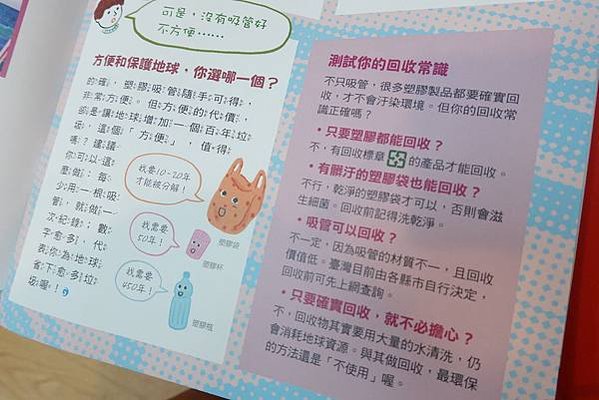 可是，沒有吸管好
不方便……
方便和保護地球，你選哪一個？
的確，塑膠吸管隨手可得，
非常方便。但方便的代價，
卻是讓地球增加一個百年垃
圾，這個「方便」，值得
嗎？建議
你可以這
麼做：每
少用一根吸
管，就做一
次紀錄；數
字愈多，代
表你為地球
省下愈多垃
圾喔！
我要10-20年
才能被分解！
塑膠袋
我需要
50年！
塑膠杯
我需要
450年！
塑膠瓶
測試你的回收常識
不只吸管，很多塑膠製品都要確實回
收，才不會汙染環境。但你的回收常
識正確嗎？
•只要塑膠都能回收？
不，有回收標章的產品才能回收。
•有髒汙的塑膠袋也能回收？
不行，乾淨的塑膠袋才可以，否則會滋
生細菌。回收前記得洗乾淨。
•吸管可以回收？
不一定，因為吸管的材質不一，且回收
價值低。臺灣目前由各縣市自行決定，
回收前可先上網查詢。
•只要確實回收，就不必擔心？
不，回收物其實要用大量的水清洗，仍
會消耗地球資源。與其做回收，最環保
的方法還是「不使用」喔。